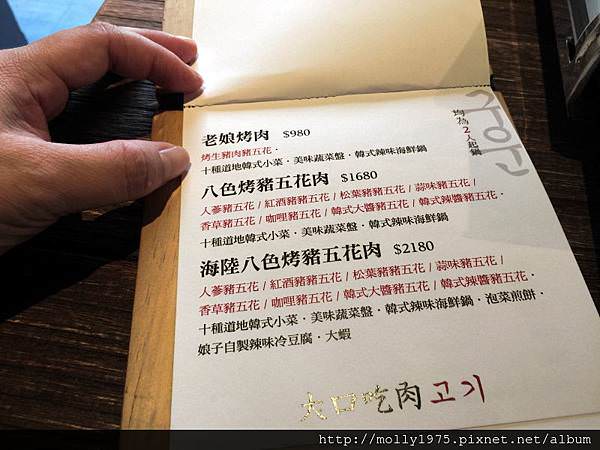 老娘烤肉 $980
烤生豬肉豬五花·
十種道地韓式小菜·美味蔬菜盤·韓式辣味海鮮鍋
八色烤豬五花肉 $1680
人蔘豬五花/紅酒豬豬五花/松葉豬豬五花/蒜味豬五花/
香草豬五花/咖哩豬五花/韓式大醬豬五花/韓式辣醬豬五花·
十種道地韓式小菜·美味蔬菜盤·韓式辣味海鮮鍋
海陸八色烤豬五花肉 $2180
人蔘豬五花/紅酒豬豬五花/松葉豬豬五花/蒜味豬五花/
香草豬五花/咖哩豬五花/韓式大醬豬五花/韓式辣醬豬五花·
十種道地韓式小菜·美味蔬菜盤·韓式辣味海鮮鍋·泡菜煎餅·
娘子自製辣味冷豆腐·大蝦
均為2人起鍋
大口吃肉고기
http://molly1975.pixnet.net/album